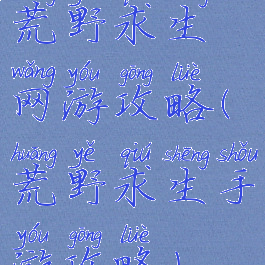 荒野求生
wǎng yóu gōng lüè
网游攻略(
huāng yě qiú shēng shǒu
荒野求生手
yóu gōng lüè
游攻略)